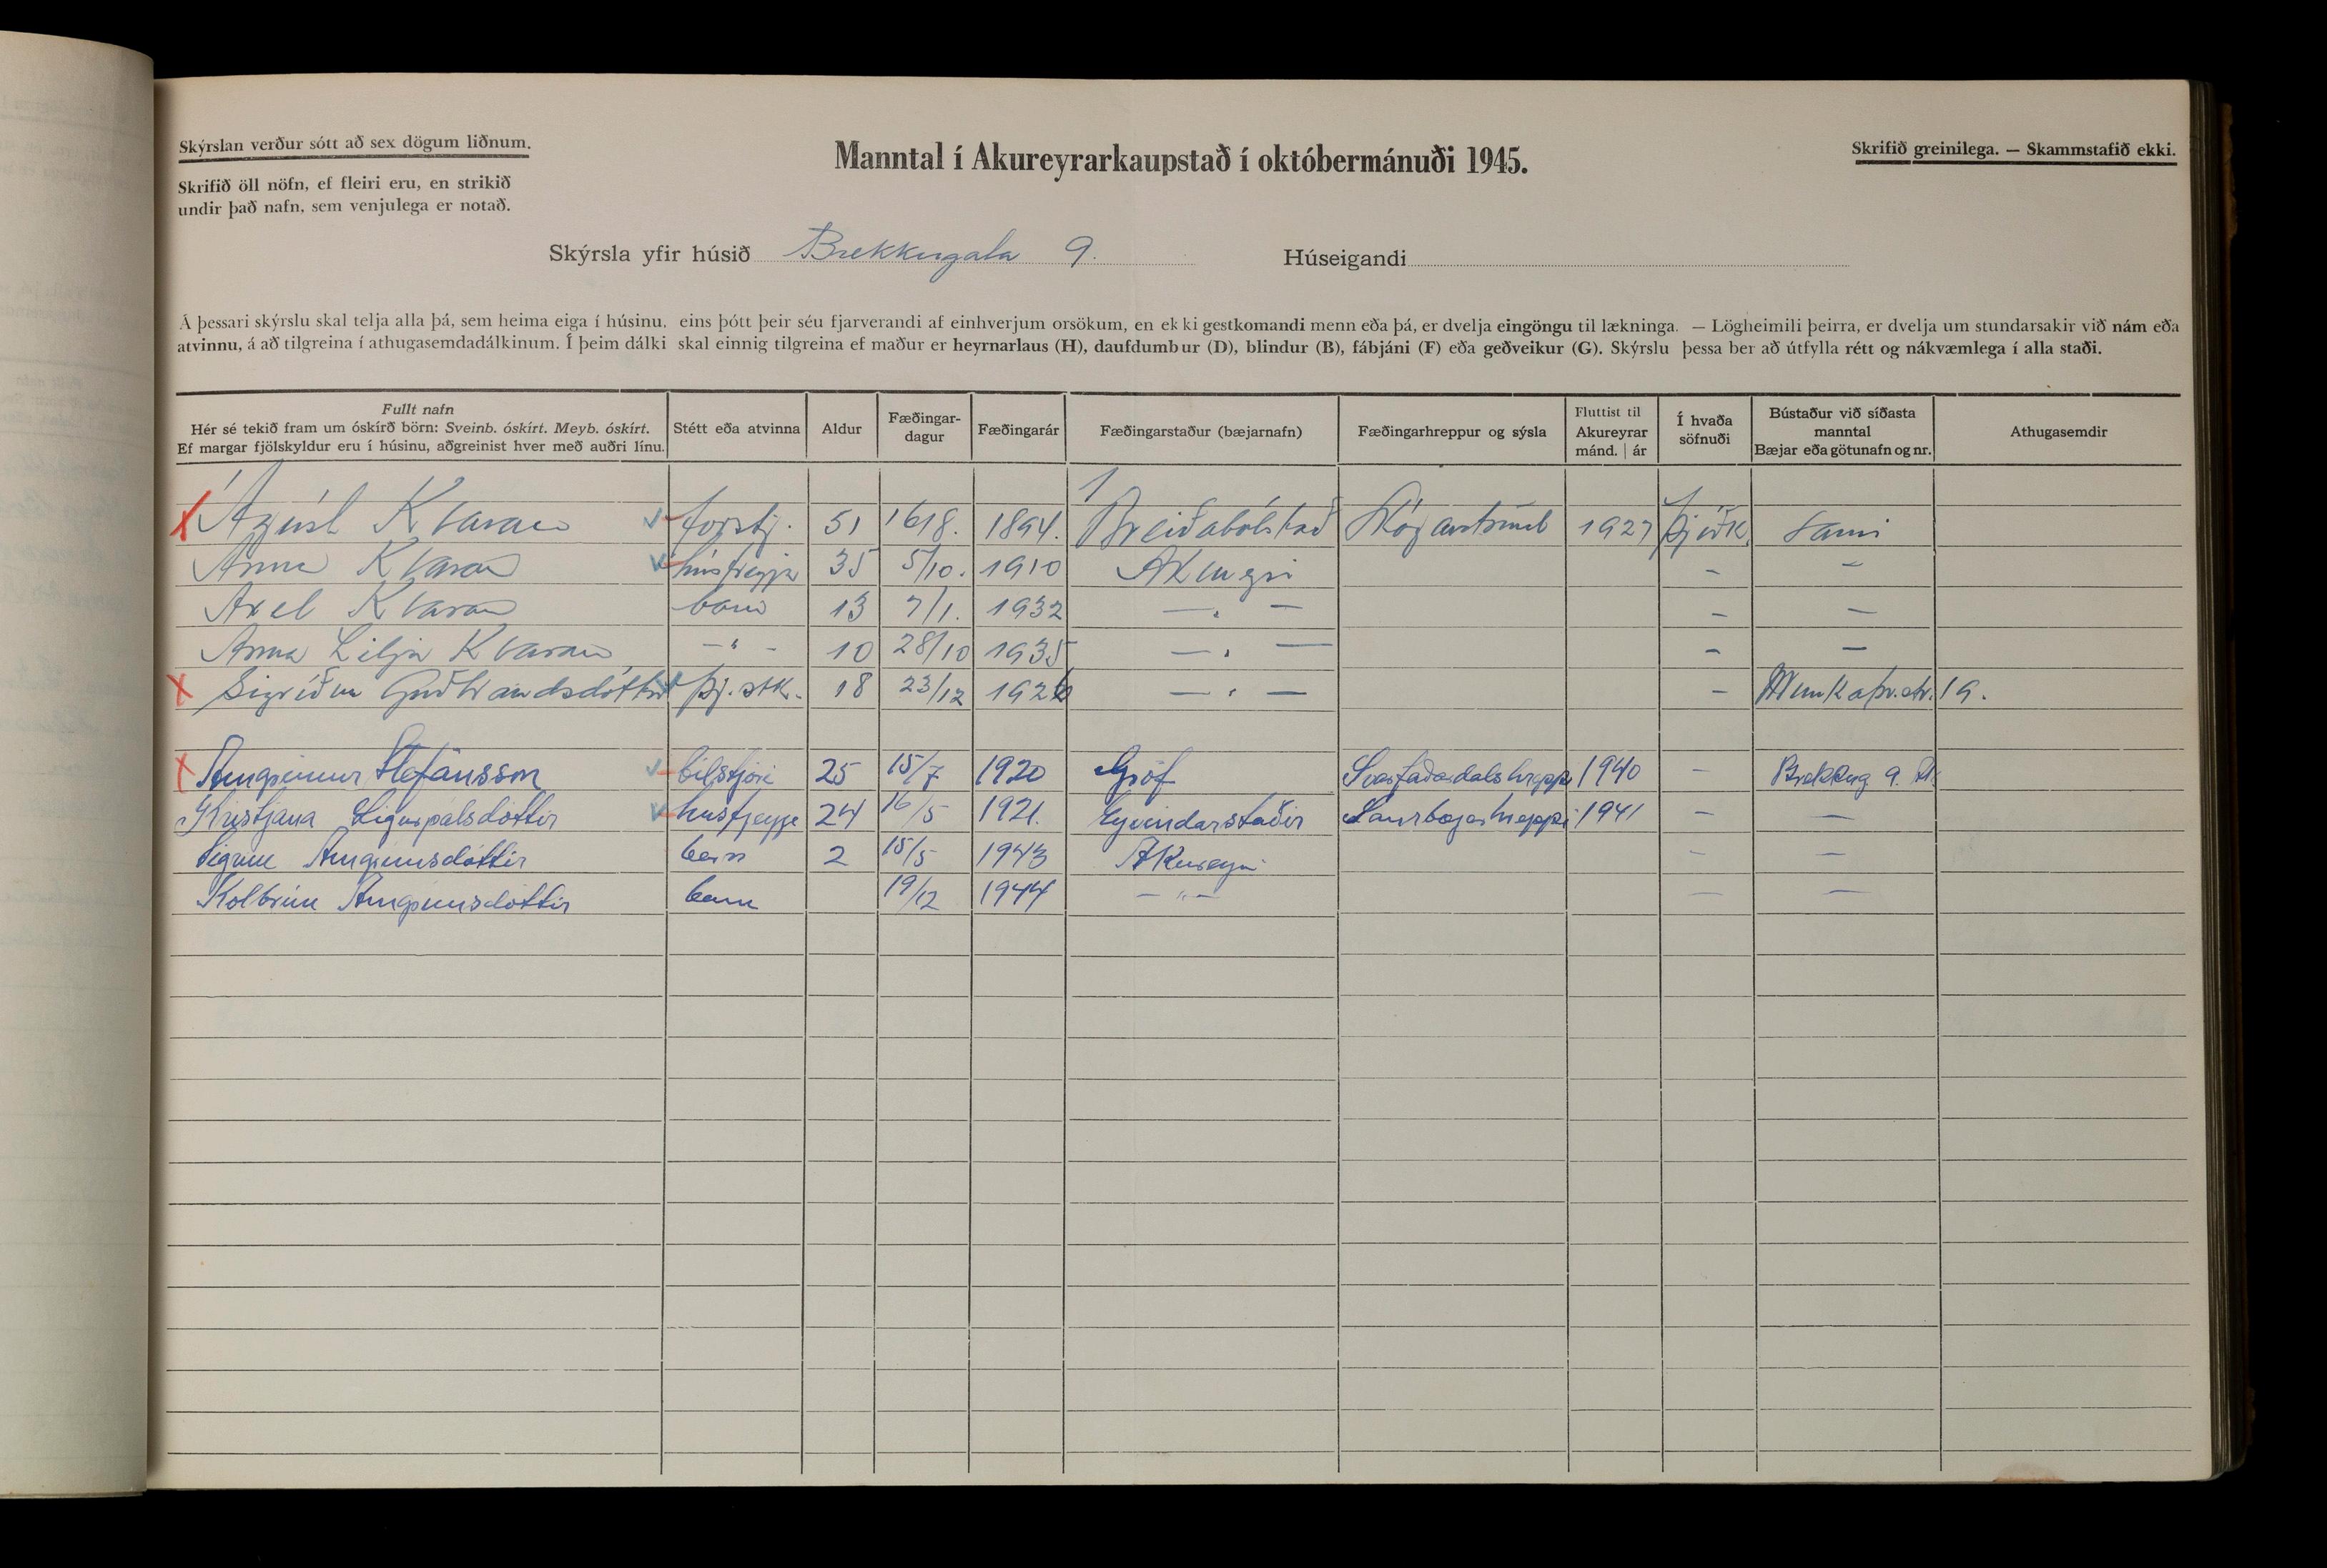 Skýrslan verður sótt að sex dögum liðnum.
Skrifið öll nöfn, ef fleiri eru, en strikið
undir það nafn, sem venjulega er notað.
Manntal í Akureyrarkaupstað í októbermánuði 1945.
Skrifið greinilega. — Skammstafið ekki.
Skýrsla yfir húsið Brekkugata 9. Húseigandi
Á þessari skýrslu skal telja alla þá, sem heima eiga í húsinu, eins þótt þeir séu fjarverandi af einhverjum orsökum, en ekki gestkomandi menn eða þá, er dvelja eingöngu til lækninga. — Lögheimili þeirra, er dvelja um stundarsakir við nám eða
atvinnu, á að tilgreina í athugasemdadálkinum. Í þeim dálki skal einnig tilgreina ef maður er heyrnarlaus (H), daufdumbur (D), blindur (B), fábjáni (F) eða geðveikur (G). Skýrslu þessa ber að útfylla rétt og nákvæmlega í alla staði.
Fullt nafn
Hér sé tekið fram um óskírð börn: Sveinb. óskírt. Meyb. óskírt.
Ef margar fjölskyldur eru í húsinu, aðgreinist hver með auðri línu.
Stétt eða atvinna
Aldur
Fæðingar-
dagur
Fæðingarár
Fæðingarstaður (bæjarnafn)
Fæðingarhreppur og sýsla
Fluttist til
Akureyrar
mánd. | ár
Í hvaða
söfnuði
Bústaður við síðasta
manntal
Bæjar eða götunafn og nr.
Athugasemdir
X Ágúst Kvaran forstj. 51 16/8. 1894. Breiðabólstað Skógarströnd 1927 Þjóðk. Sami
Anna Kvaran húsfreyja 35 5/10. 1910 Akureyri – –
Axel Kvaran barn 13 7/1. 1932 — „ — – –
Anna Lilja Kvaran — „ – 10 28/10 1935 — „ — – –
X Sigríður Guðbrandsdóttir þj.stk. 18 23/12 1926 — „ — – Munkaþv.str. 19.
X Arngrímur Stefánsson bílstjóri 25 15/7 1920 Gröf Svarfaðardalshreppi 1940 – Brekkug 9. Ak
Kristjana Sigurpálsdóttir húsfreyja 24 16/5 1921. Eyvindarstaðir Saurbæjarhreppi 1941 – —
Sigrún Arngrímsdóttir barn 2 15/5 1943 Akureyri – —
Kolbrún Arngrímsdóttir barn 19/12 1944 — „ — — —